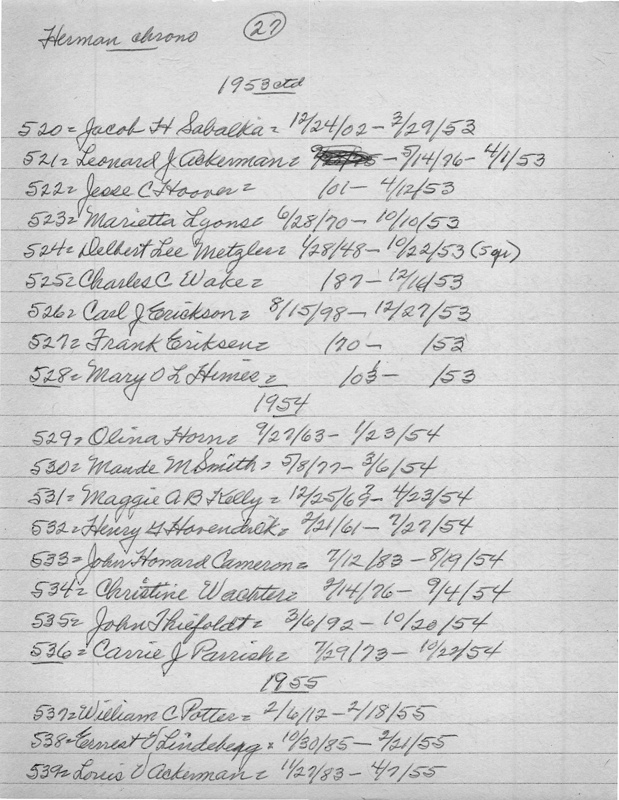 Herman chrono 27
1953 ctd
520= Jacob H Sabalka= 12/24/02 - 3/29/53
521= Leonard J. Ackerman= - 5/14/76 - 4/1/53
522= Jesse C Hoover= /01 - 4/12/53
523= Marietta Lyons= 6/28/70 - 10/10/53
524= Delbert Lee Metzler= 1/28/48 - 10/22/53 (5 yr)
525= Charles C Wake= /87 - 12/16/53
526= Carl J Erickson= 8/15/98 - 12/27/53
527= Frank Eriksen= /70 - /53
528= Mary O L Himes= /03 - /53
1954
529= Olina Horn= 9/27/63 - 1/23/54
530= Maude M Smith= 5/8/77 - 3/6/54
531= Maggie A B Kelly= 12/25/69 - 4/23/54
532= Henry H Hovendick= 2/21/61 - 7/27/54
533= John Howard Cameron= 7/12/83 - 8/19/54
534= Christine Wachter= 2/14/76 - 9/4/54
535= John Thiefoldt= 3/6/92 - 10/20/54
536= Carrie J Parrish= 7/29/73 - 10/22/54
1955
537= William C Potter= 2/6/12 - 2/18/55
538= Ernest V Lindeberg= 10/30/85 - 2/21/55
539= Louis V Ackerman= 11/27/83 - 4/7/55